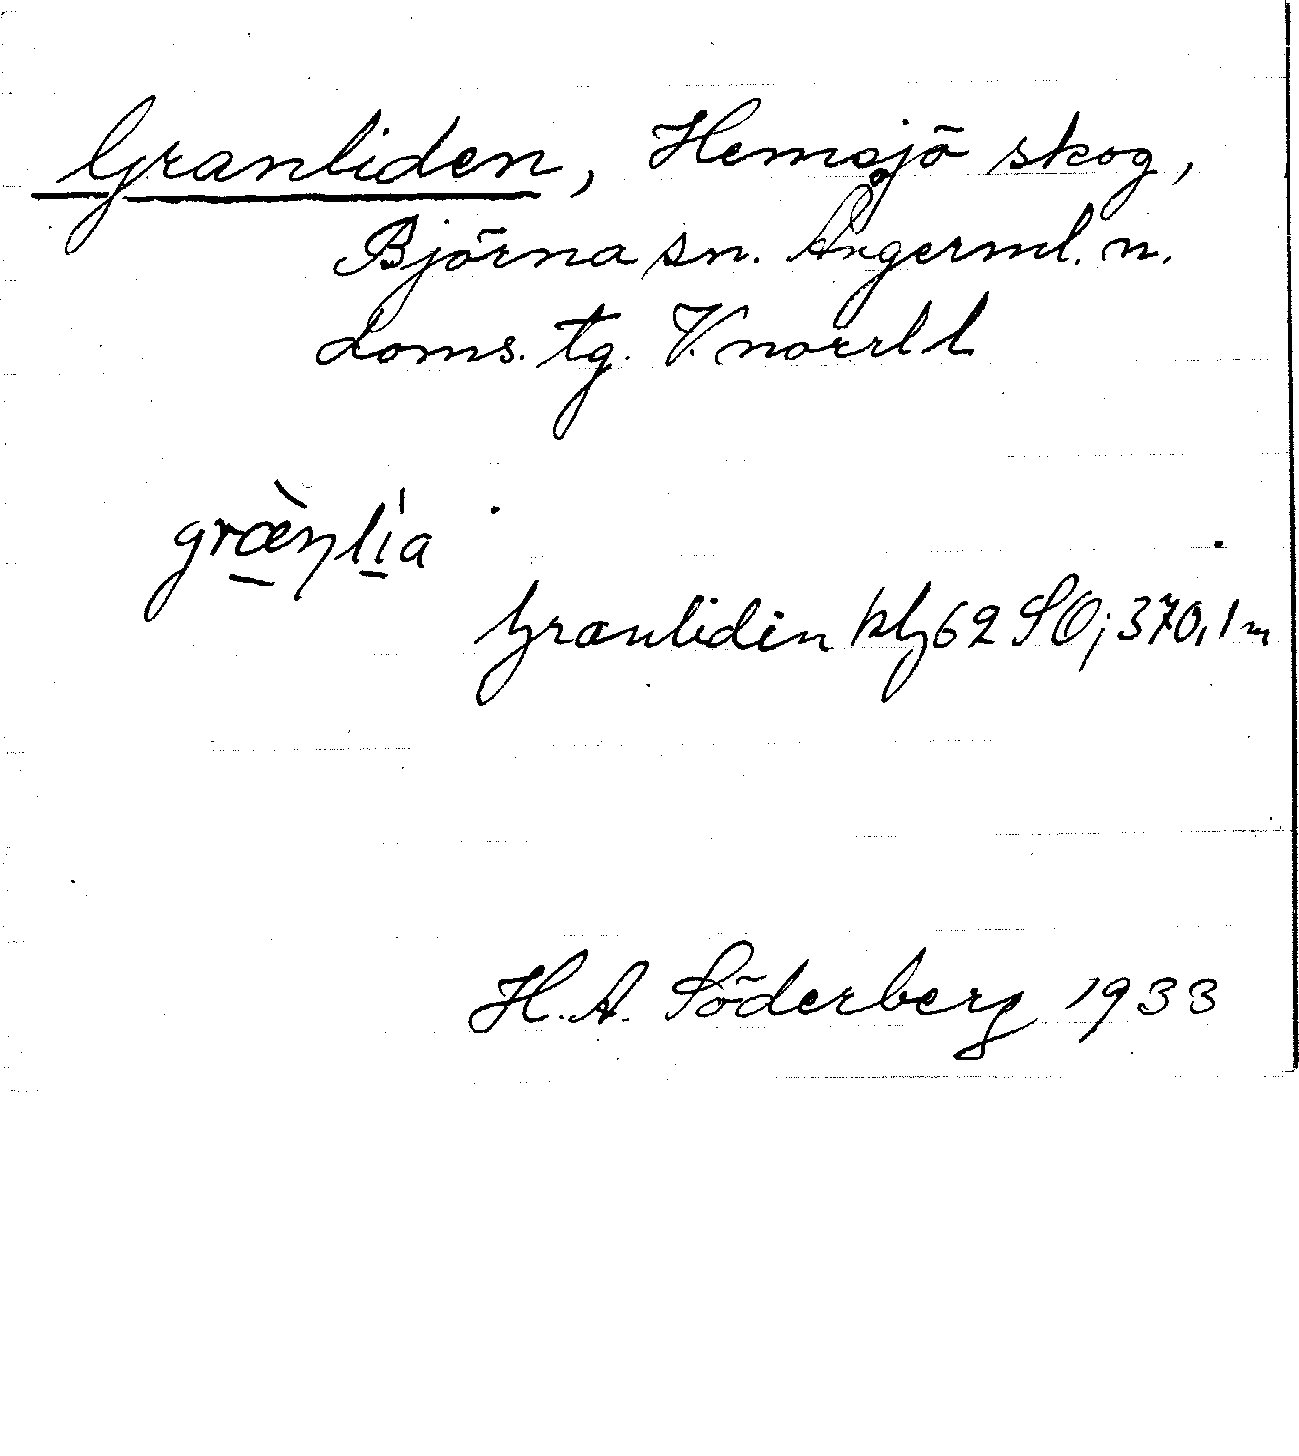 Granliden, Hemsjö skog,
Björna sn. Ångerml. n.
doms. tg. V. norrl l.
Granliden kbl 62 SO; 370,1 m
H. A. Söderberg 1933